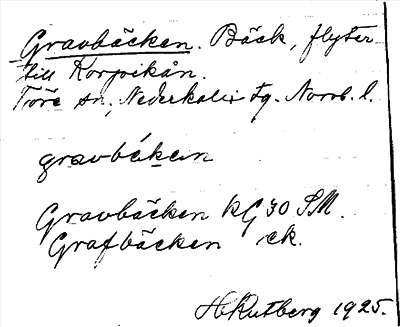 Gravbäcken. Bäck, flyter
till Korpikån.
Töre sn, Nederkalix tg. Norrb. l.
gravbékɛn
Gravbäcken kG 30 SM.
Grafbäcken ek.
H Rutberg 1925.